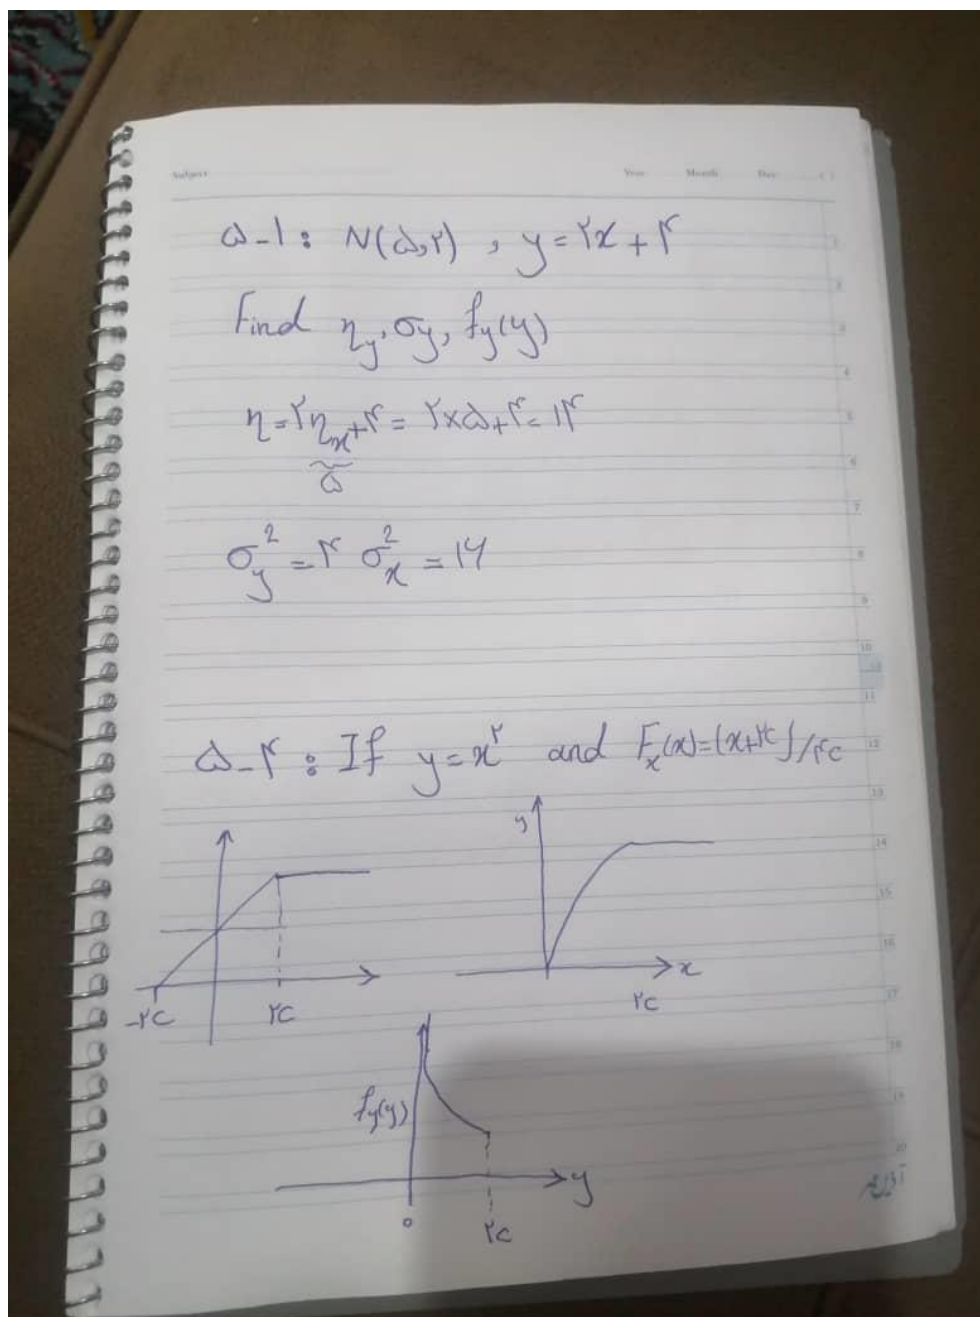 Subject Year Month Day ( )
۵-۱: N(۵,۲) , y=۲x+۴
Find η_y, σ_y, f_y(y)
η=۲η_x+۴= ۲×۵+۴=۱۴
۵
σ_y^2 =۴ σ_x^2 = ۱۶
۵-۴: If y=x^۲ and F_x(x)=(x+۲c)/۴c
y
-۲c ۲c
x
۲c
f_y(y)
y
۰ ۲c
1
2
3
4
5
6
7
8
9
10
11
12
13
14
15
16
17
18
19
20